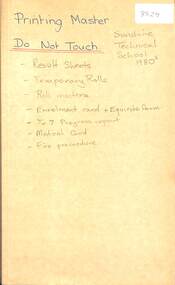 Printing Master
8524
Do Not Touch
Sunshine
Technical
School
1980s
- Result Sheets
- Temporary Rolls
- Roll machine
- Enrolment card + Equisite form
- Yr 7 Progress report
- Medical Card
- Fire procedure